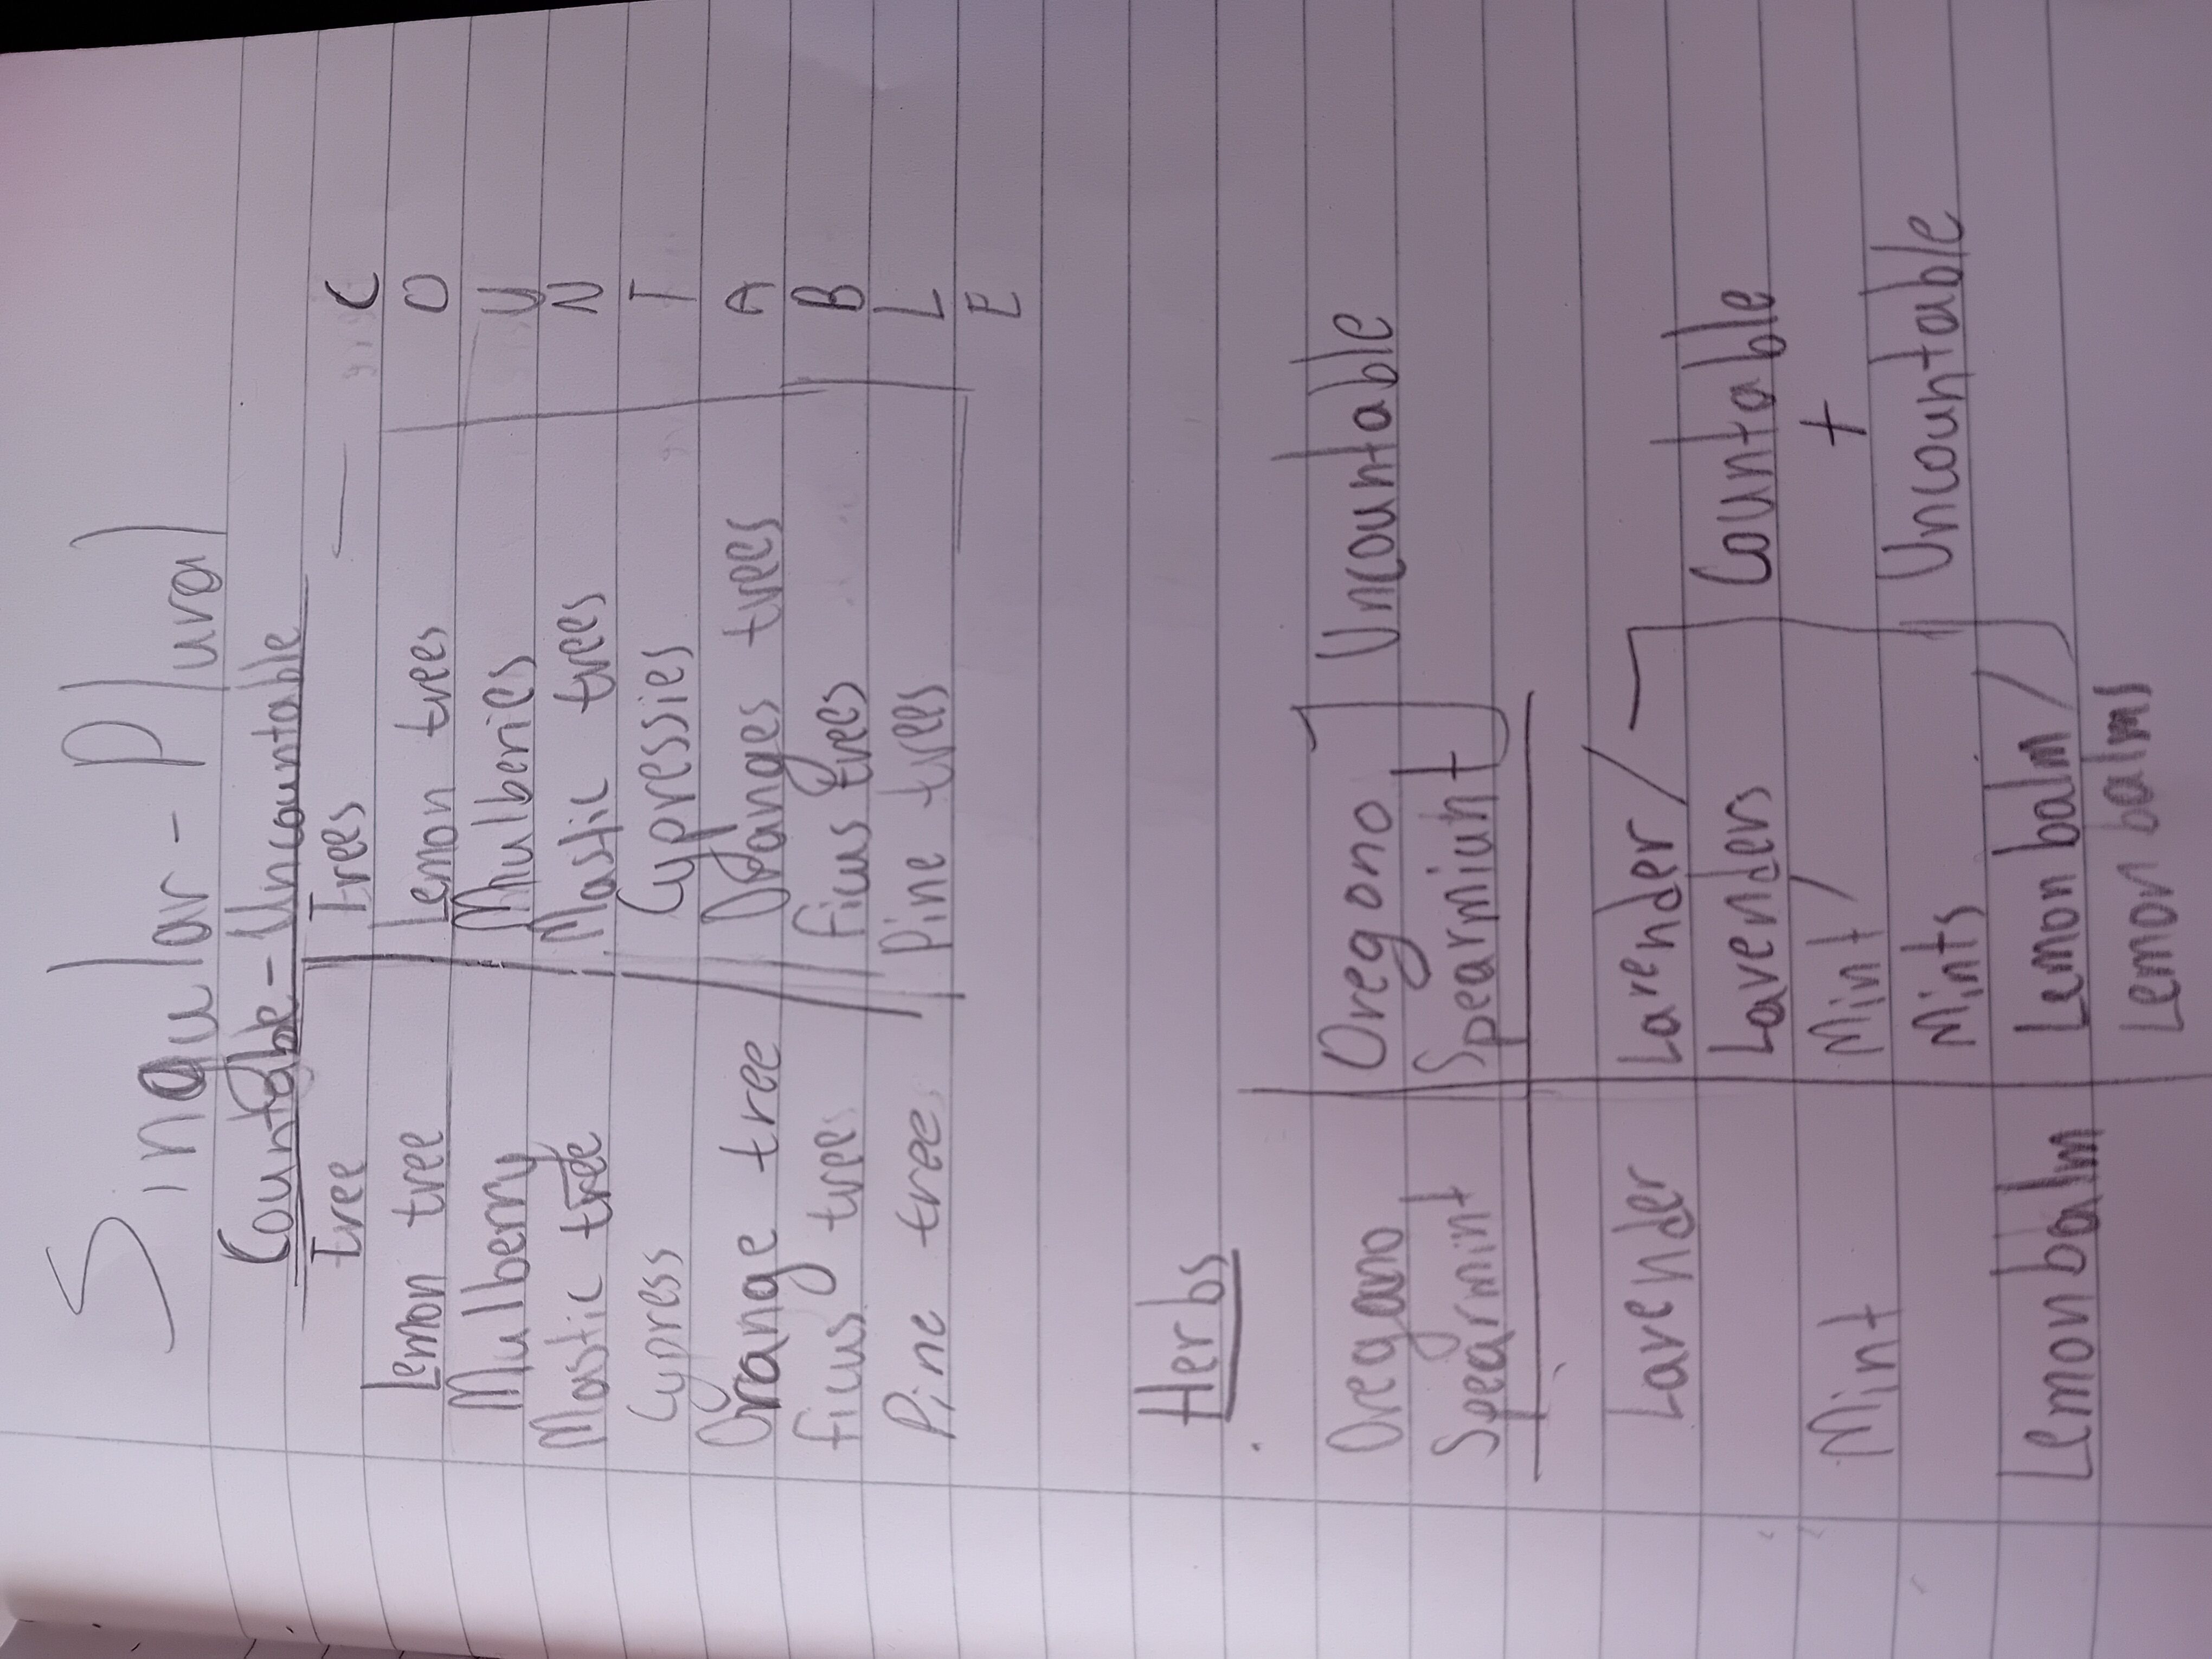 Singular - Plural
Countable - Uncountable
Tree Trees — C
Lemon tree Lemon trees O
Mulberry Mulberries U
Mastic tree Mastic trees N
Cypress Cypressies T
Orange tree Oranges trees A
Ficus trees Ficus trees B
Pine tree Pine trees L
E
Herbs
Oregano Oregono Uncountable
Spearmint Spearmint
Lavender Lavender/
Lavenders Countable
Mint Mint/ +
Mints Uncountable
Lemon balm Lemon balm/
Lemon balms